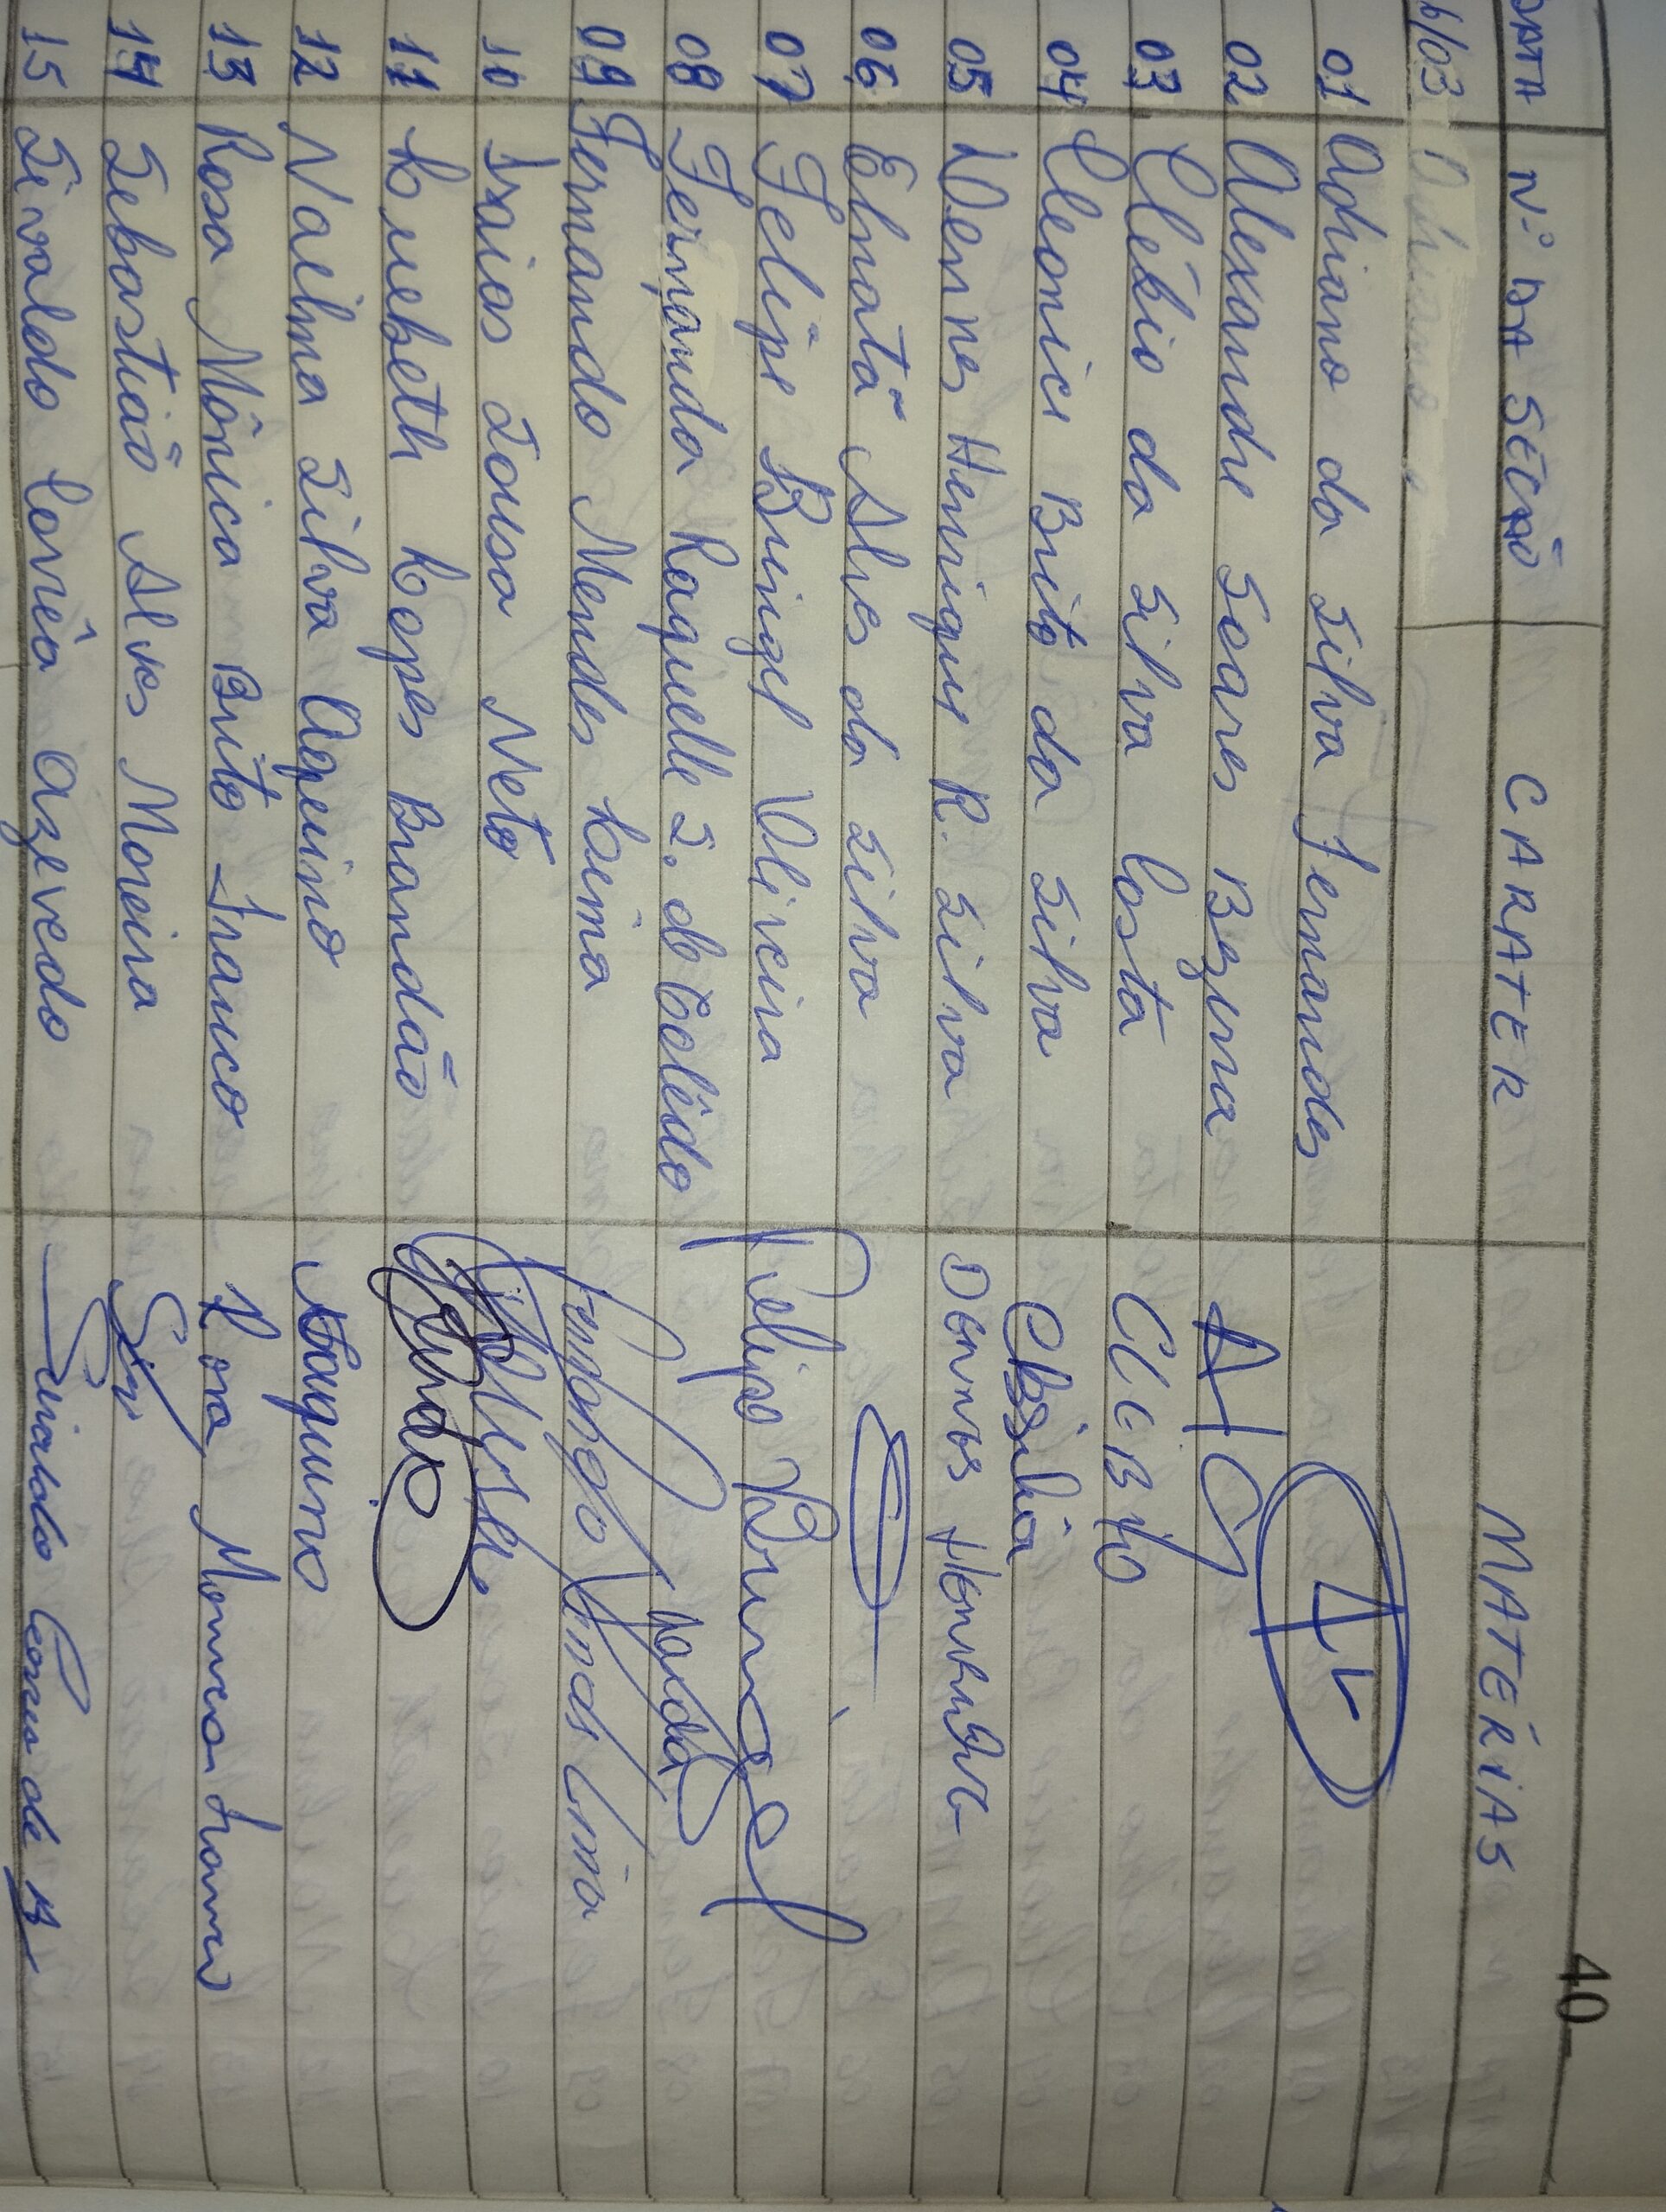 40
DATA Nº DA SEÇÃO CARATER MATÉRIAS
6/03 Adriano
01 Adriano da Silva Fernandes
02 Alexandre Soares Bezerra
03 Clébio da Silva Costa CLEBIO
04 Cleonice Brito da Silva
05 Dennes Henrique R. Silva Dennes Henrique
06 Elnatã Alves da Silva
07 Felipe Bringel Vieira Felipe Bringel
08 Fernanda Raquelle S. de Toledo
09 Fernando Mendes Lima Fernando Mendes Lima
10 Isaias Sousa Neto
11 Luebeth Lopes Brandão
12 Naelma Silva Aquino Naquino
13 Rosa Mônica Brito Franco Rosa Monica Franco
14 Sebastião Alves Moreira
15 Sivaldo Corrêa Azevedo Sivaldo Correa de